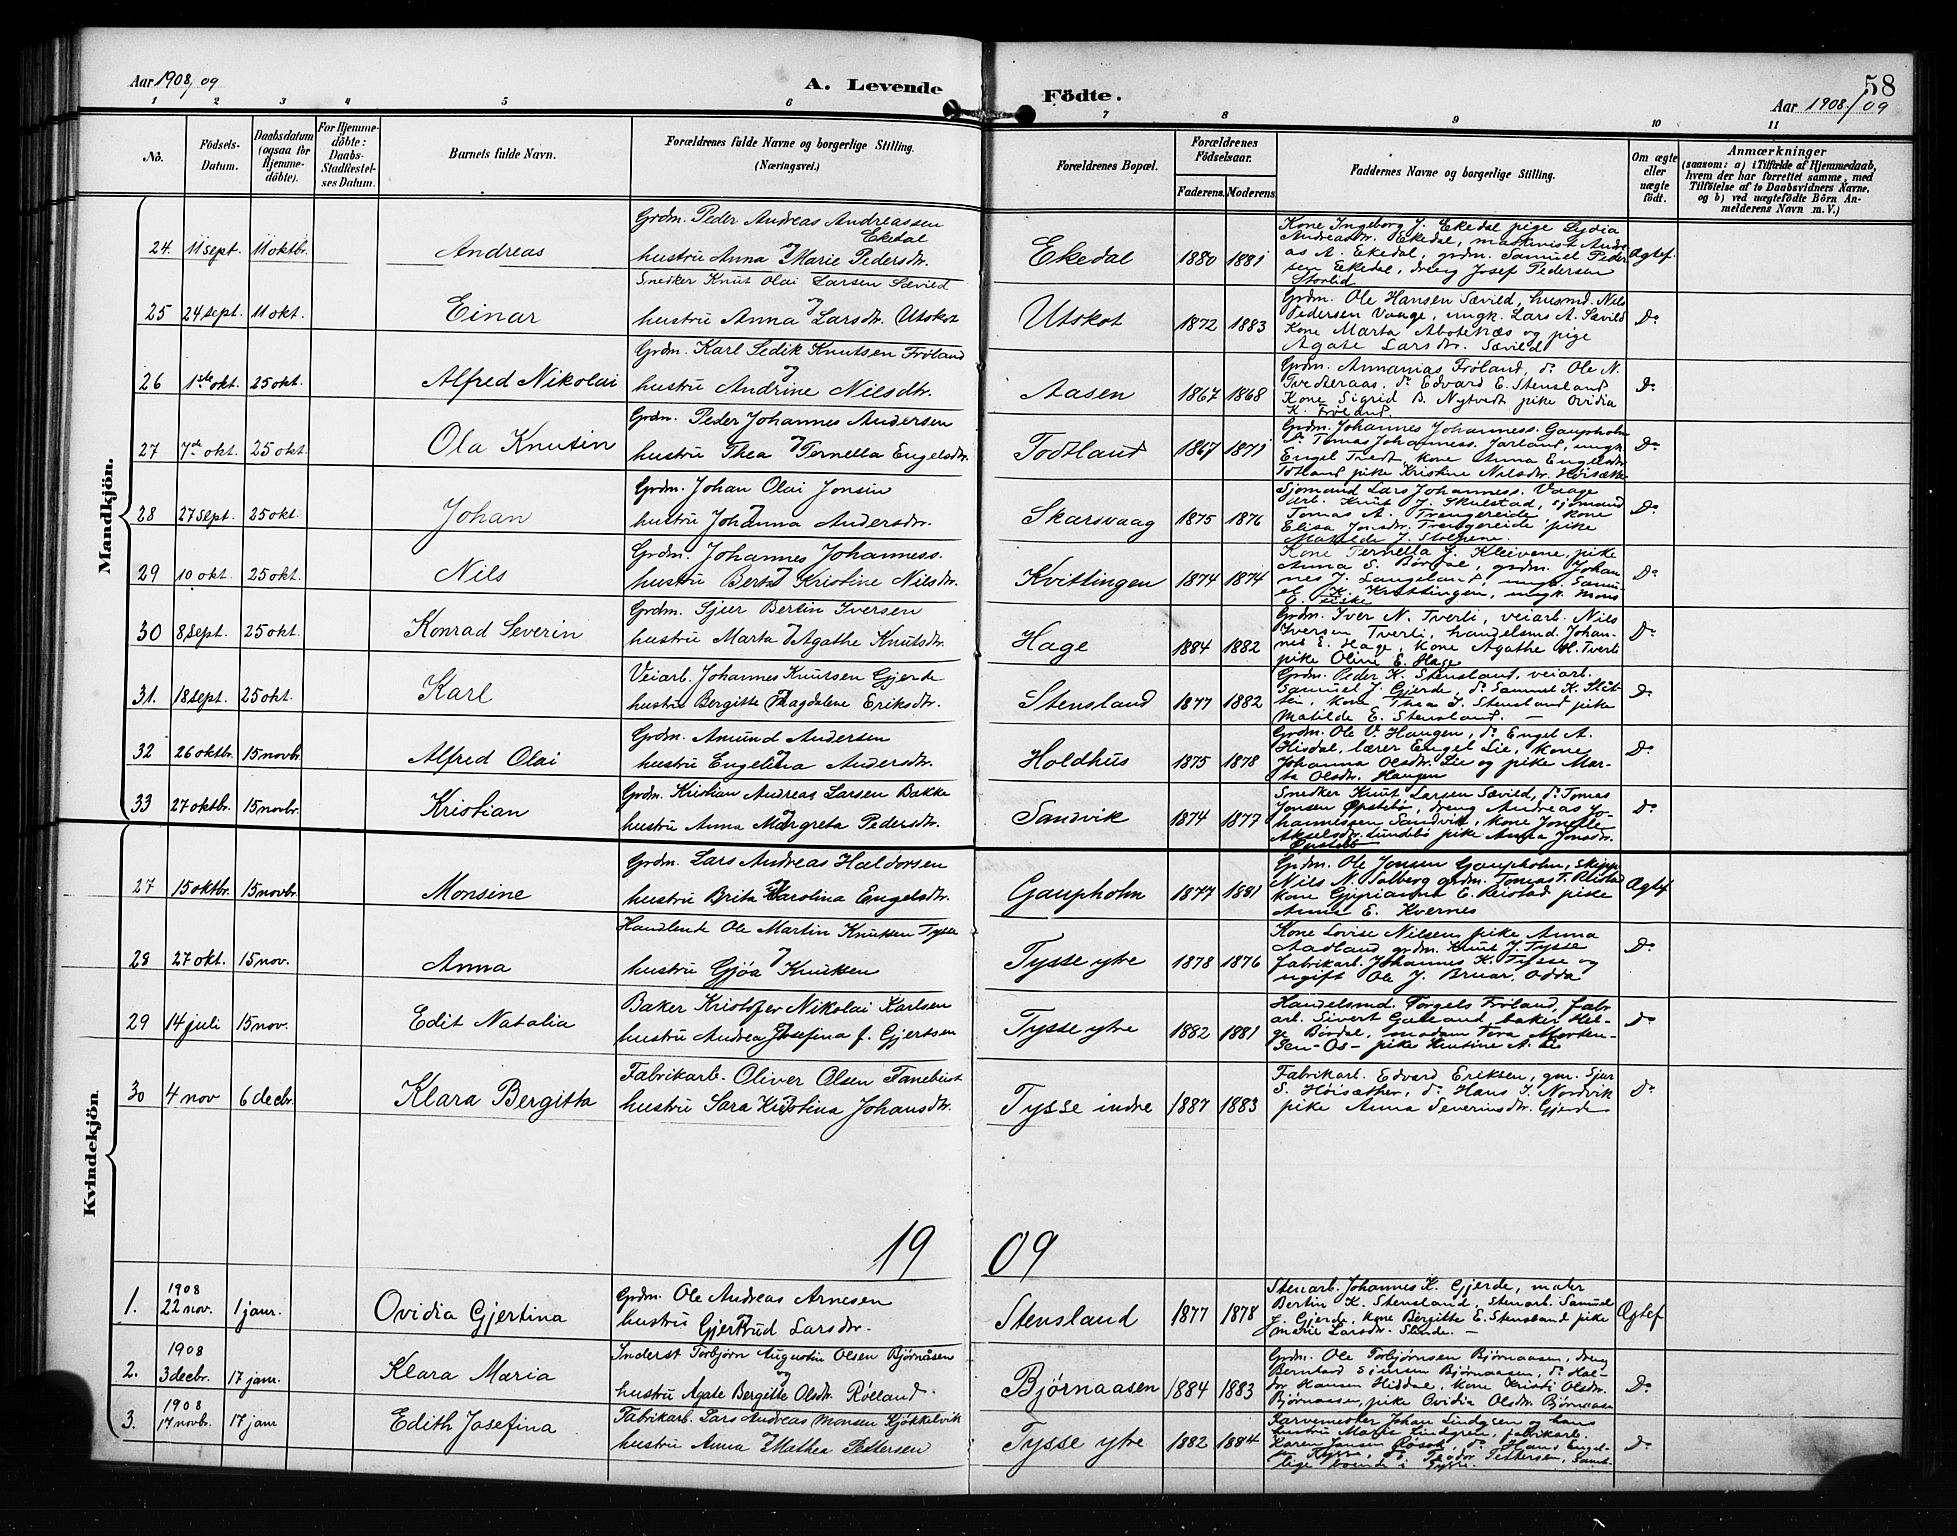 58
Aar 1908/09
A. Levende Födte.
Aar 1908/09
1 2 3 4 5 6 7 8 9 10 11
No.
Födsels-Datum.
Daabsdatum (ogsaa for Hjemme-döbte).
For Hjemme-döbte: Daabs-Stadfæstel-ses Datum.
Barnets fulde Navn.
Forældrenes fulde Navne og borgerlige Stilling.
(Næringsvei.)
Forældrenes Bopæl.
Forældrenes Födselsaar.
Faderens. Moderens
Faddernes Navne og borgerlige Stilling.
Om ægte eller uægte födt.
Anmærkninger
(saasom: a) i Tilfælde af Hjemmedaab,
hvem der har forrettet samme, med
Tilföielse af to Daabsvidners Navne.
og b) ved uægtefödte Börn An-
melderens Navn m. V.)
Mandkjön.
24 11 sept. 11 oktbr. Andreas
Grdm. Peder Andreas Andreassen Ekedal
hustru Anna Marie Pedersdtr.
Ekedal 1880 1881
Kone Ingeborg J. Ekedal pige Lydia
Andreasdtr. Ekedal, maskinist Andre-
as A. Ekedal, grdm. Samuel Peder-
sen Ekedal, dreng Josef Pedersen
Storlid
Ægtef.
25 24 sept. 11 okt. Einar
Snedker Knut Olai Larsen Sævild
og
hustru Anna Larsdtr. Utskot
Utskot 1872 1883
Grdm. Ole Hansen Sævild, husmd. Nils
Pedersen Vaage, ungk. Lars A. Sævild
Kone Marta Abotenæs og pige
Agate Larsdtr. Sævild
Do
26 1ste okt. 25 okt. Alfred Nikolai
Grdm. Karl Sedik Knutsen Frøland
og
hustru Andrine Nilsdtr.
Aasen 1867 1868
Grdm. Annanias Frøland, do Ole N.
Tvedteraas, do Edvard E. Stensland
Kone Sigrid B. Nytvedt pike Ovidia
K. Frøland.
Do
27 7de okt. 25 okt. Ola Knutsin
Grdm. Peder Johannes Andersen
hustru Thea Pernella Engelsdtr.
Todtland 1867 1871
Grdm. Johannes Johanness. Gaupholm
do Tomas Johanness. Jarland, ungk.
Engel Tvedt, kone Anna Engelsdtr.
Totland pike Kristine Nilsdtr.
Do
28 27 sept. 25 okt. Johan
Grdm. Johan Olai Jonsin
hustru Johanna Andersdtr.
Skarsvaag 1875 1876
Sjømand Lars Johanness. Vaage
arb. Knut J. Skulstad, sjømand
Tomas A. Trengereide, kone
Elisa Jonsdtr. Trengereide, pike
Matilde J.
Do
29 10 okt. 25 okt. Nils
Grdm. Johannes Johanness.
hustru Berta Kristine Nilsdtr.
Kvittingen 1874 1874
Kone Pernella J. Kleivene, pike
Anna S. Børdal, grdm. Johan-
nes J. Langeland, ungk. Samu-
el K. Kvittingen, ungk. Mons
Do
30 8 sept. 25 okt. Konrad Severin
Grdm. Sjur Bertin Iversen
hustru Marta Agathe Knutsdtr.
Hage 1884 1882
Grdm. Iver N. Tverli, veiarb. Nils
Iversen Tverli, handelsmd. Johan-
nes E. Hage, kone Agathe H. Tverli
pike Oline E. Hage
Do
31. 18 sept. 25 okt. Karl
Veiarb. Johannes Knutsen Gjerde
hustru Bergitte Magdalene Eriksdtr.
Stensland 1877 1882
Grdm. Peder K. Stensland, veiarb.
Samuel J. Gjerde, do Samuel K. Slåt-
ten, kone Thea J. Stensland pike
Matilde E. Stensland. —
Do
32 26 oktbr. 15 novbr. Alfred Olai
Grdm. Amund Andersen
hustru Engelina Andersdtr.
Holdhus 1875 1878
Grdm. Ole V. Haugen, do Engel A.
Hisdal, lærer Engel Lie, kone
Johanna Olsdtr. Lie og pike Mar-
ta Olsdtr. Haugen
Do
33 27 oktbr. 15 novbr. Kristian
Grdm. Kristian Andreas Larsen Bakke
hustru Anna Margreta Pedersdtr.
Sandvik 1874 1877
Snedker Knut Larsen Sævild, do Tomas
Jonsen Øpstebø, dreng Andreas Jo-
hannessen Sandvik, kone
Akselsdtr. Lundebø pike Anna Jonsdtr.
Øpstebø
Do
Kvindekjön.
27 15 oktbr. 15 novbr. Monsine
Grdm. Lars Andreas Haldorsen
hustru Brita Karolina Engelsdtr.
Gaupholm 1877 1881
Grdm. Ole Jonsen Gaupholm, Skipp.
Nils N. Solberg grdm. Tomas T. Reistad
kone Gjurianna E. Reistad pike
Anna E. Kvernes
Ægtef.
28 27 okt. 15 nov. Anna
Handlende Ole Martin Knutsen Tysse
hustru Gjøa Knutsen
Tysse ytre 1878 1876
Kone Lovise Nilsen, pike Anna
Aadland grdm. Knut J. Tysse
fabrikarb. Johannes K. Tysse og
ugift Ole J. Bruar, Odda
Do
29 14 juli 15 nov. Edit Natalia
Baker Kristofer Nikolai Karlsen
hustru Andrea Josefina f. Gjertsen
Tysse ytre 1882 1881
Handelsmd. Torgels Frøland, fabr.
arb. Sivert Gaaland, baker Hel-
ge Børdal, madam Tora Morten-
sen - Os - pike Kristine A. Lie
Do
30 4 nov 6 decbr. Klara Bergitta
Fabrikarb. Oliver Olsen
hustru Sara Kristina Johansdtr.
Tysse indre 1887 1883
Fabrikarb. Edvard Eriksen, gm. Sjur
S. Høisæther, do Hans J. Nordvik
pike Anna Severinsdtr. Gjerde
Do
1909
1. 1908 22 nov. 1 janr. Ovidia Gjertina
Grdm. Ole Andreas Arnesen
hustru Gjertrud Larsdtr.
Stensland 1877 1878
Stenarb. Johannes K. Gjerde, maler
Bertin K. Stensland, stenarb. Samuel
J. Gjerde, kone Bergitte E. Stensland pike
Marie Larsdtr. —
Ægtef
2. 1908 3 decbr. 17 janr. Klara Maria
Inderst Torbjørn Augustin Olsen Bjørnåsen
og
hustru Agate Bergitte Olsdtr. Røiland.
Bjørnaasen 1884 1883
Grdm. Ole Torbjørnsen Bjørnaasen, dreng
Berntard Simensen Bjørnaasen, do Hal-
dor Hansen Hiddal, kone Kristi Olsdtr.
Bjørnaasen, pike Ovidia Olsdtr. Bjørnaasen
Do
3. 1908 17 novbr. 17 janr Edith Josefina
Fabrikarb. Lars Andreas Monsen Kjøkkelvik
hustru Anna Mathea Pettersen
Tysse ytre 1882 1884
Farvemester Johan Lindgren og hans
hustru Marie Lindgren, fabrikarb.
Karen Jansen Røsok, do Hans Engel-
Teodor Pettersen, Samt-
lige boende i Tysse.
Do